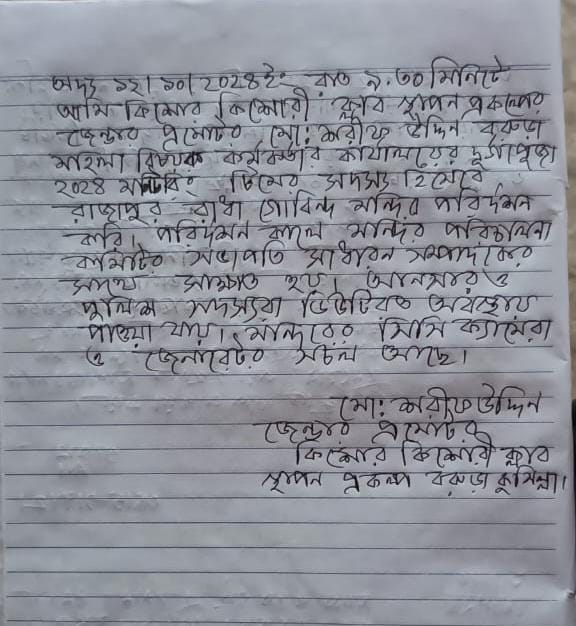 অদ্য ১২/১০/২০২৪ইং রাত ৯.৩০ মিনিটে
আমি কিশোর কিশোরী ক্লাব স্থাপন প্রকল্পের
জেন্ডার প্রমোটর মো: শরীফ উদ্দিন বরুড়া
মহিলা বিষয়ক কর্মকর্তার কার্যালয়ের দুর্গাপূজা
২০২৪ মনিটরিং টিমের সদস্য হিসেবে
রাজাপুর রাধা গোবিন্দ মন্দির পরিদর্শন
করি। পরিদর্শন কালে মন্দির পরিচালনা
কমিটির সভাপতি সাধারন সম্পাদকের
সাথে সাক্ষাত হয়। আনসার ও
পুলিশ সদস্যরা ডিউটিরত অবস্থায়
পাওয়া যায়। মন্দিরের সিসি ক্যামেরা
ও জেনারেটর সচল আছে।
মো: শরীফ উদ্দিন
জেন্ডার প্রমোটর
কিশোর কিশোরী ক্লাব
স্থাপন প্রকল্প বরুড়া কুমিল্লা।